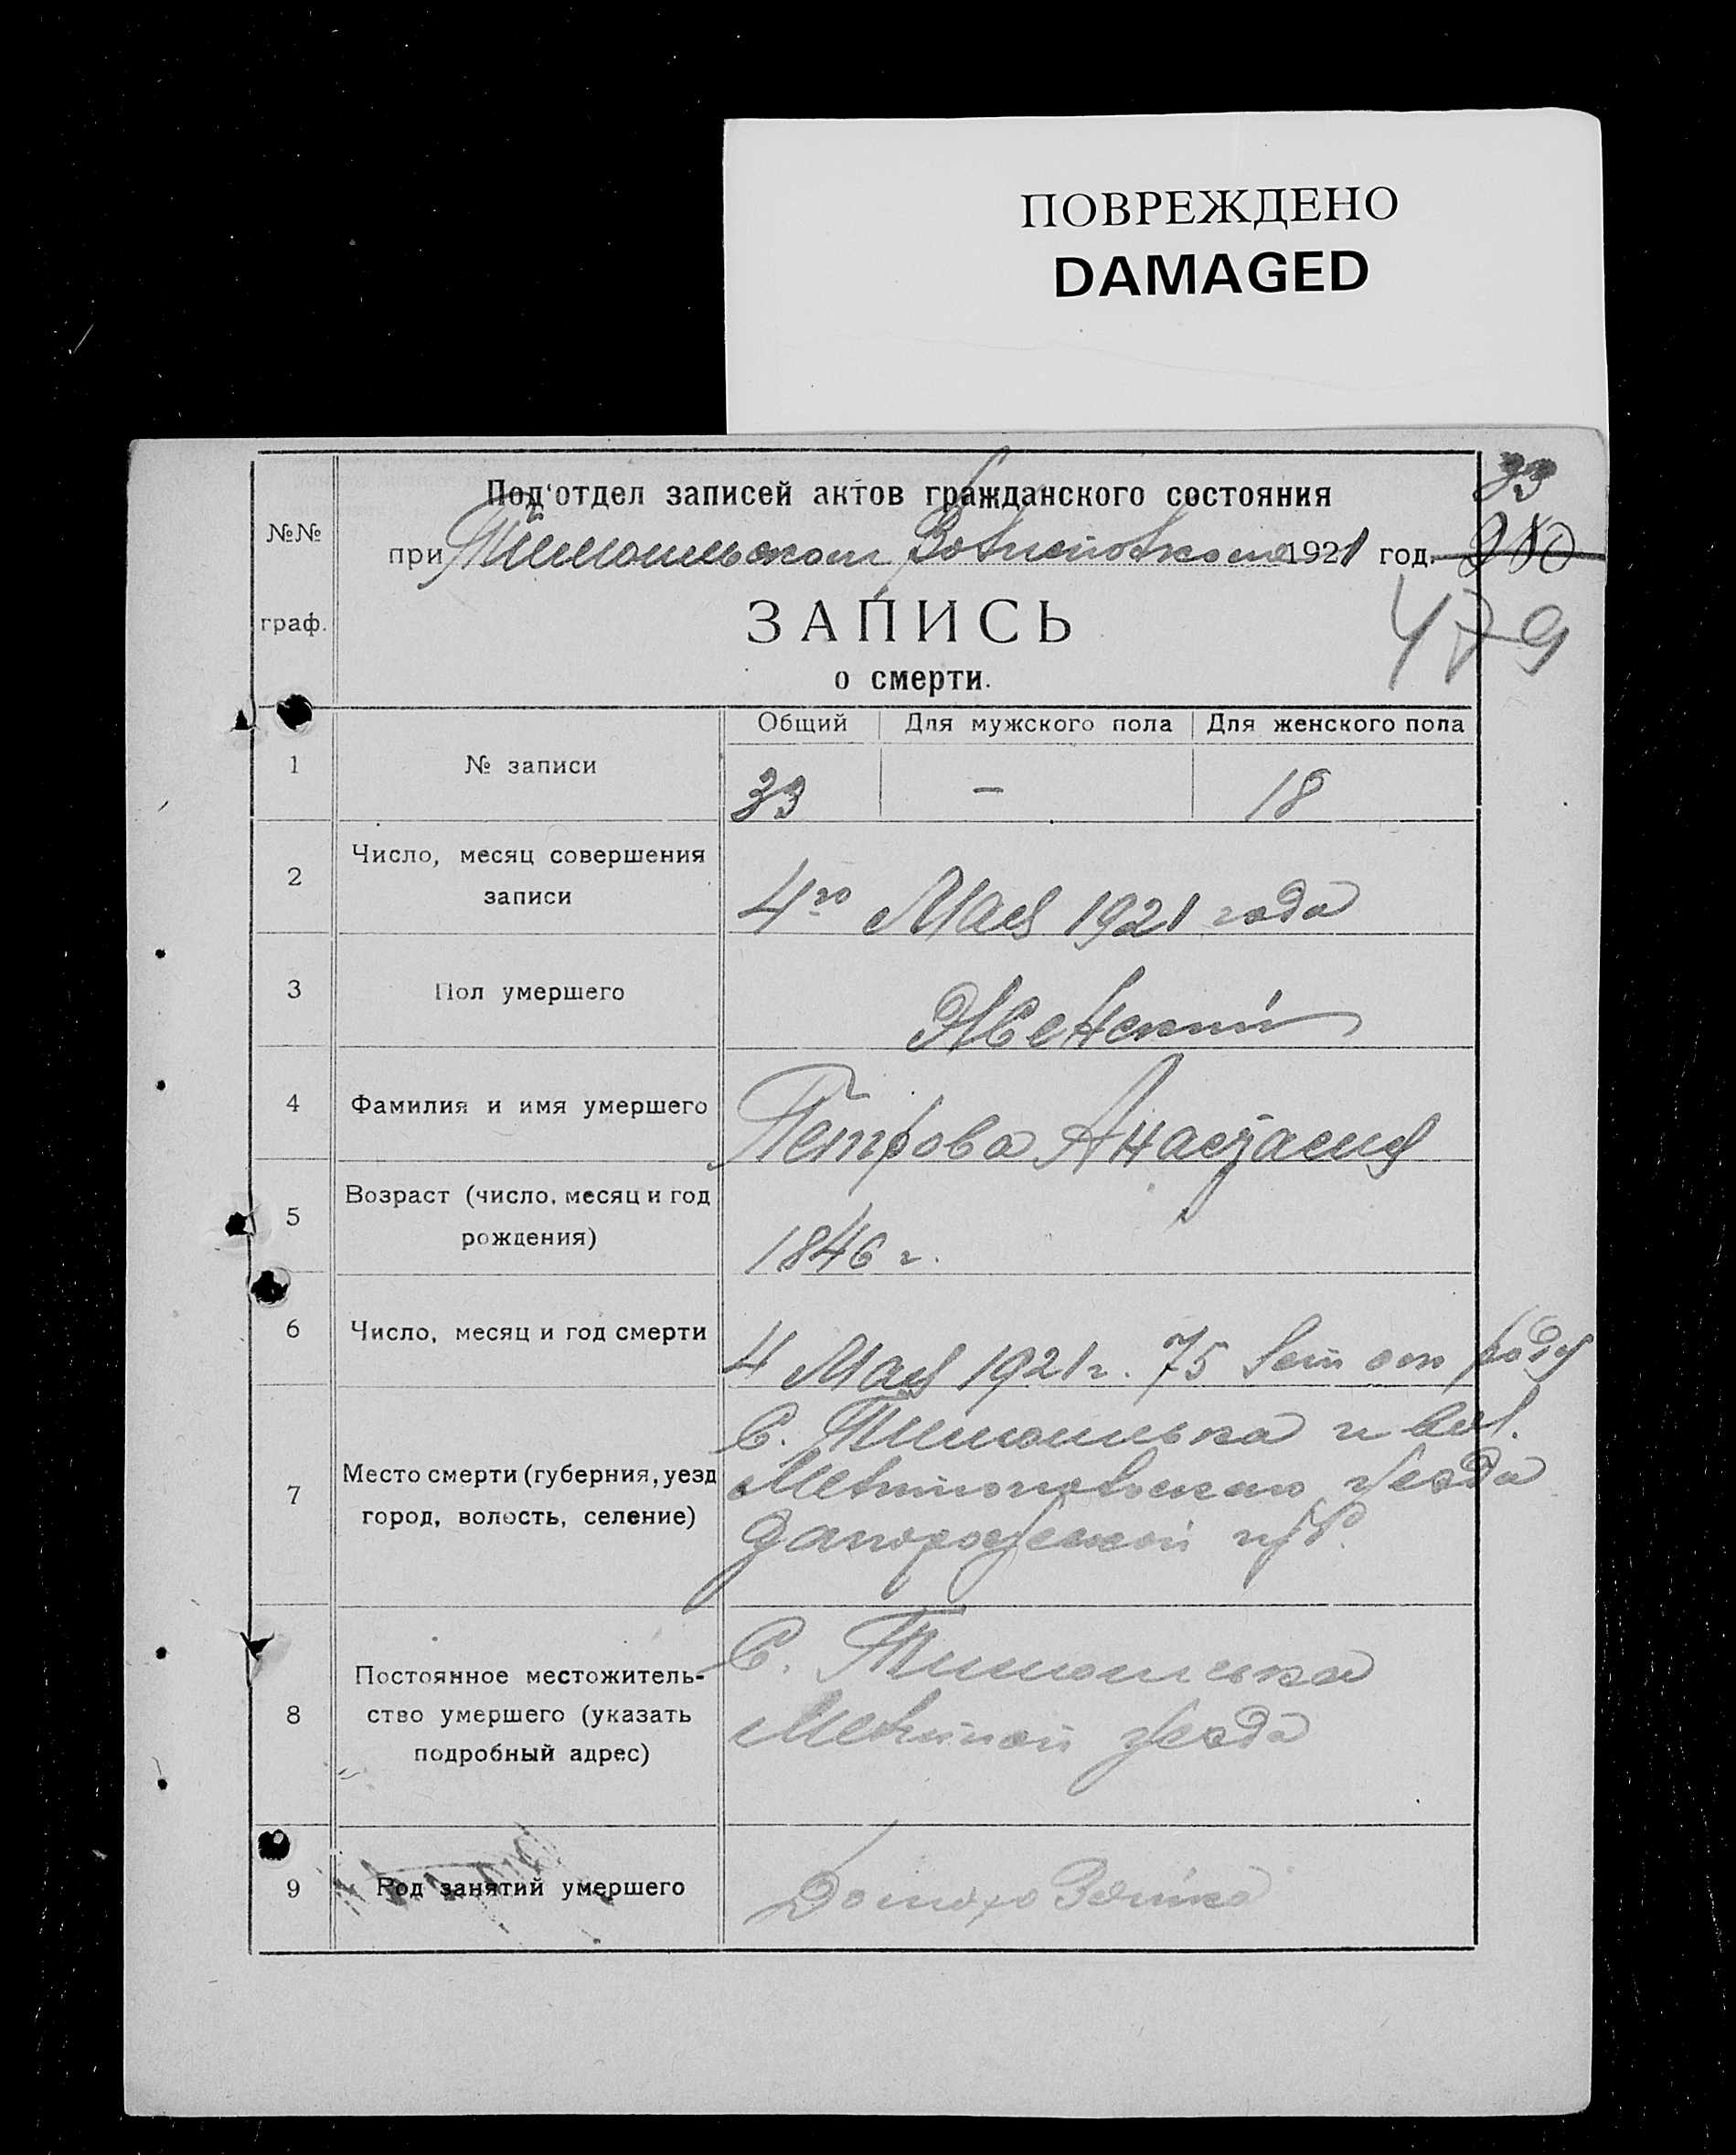 ПОВРЕЖДЕНО
DAMAGED
Под'отдел записей актов гражданского состояния
33
№№
при Тимошевском Волисполкоме 1921 год.
граф.
479
ЗАПИСЬ
о смерти.
Общий Для мужского пола Для женского пола
1 № записи 33 – 18
2 Число, месяц совершения
записи
4го Мая 1921 года
3 Пол умершего Женский
4 Фамилия и имя умершего Петрова Анастасия
5 Возраст (число, месяц и год
рождения)
1846 г.
6 Число, месяц и год смерти 4 Мая 1921 г. 75 лет от роду
7 Место смерти (губерния, уезд
город, волость, селение)
С. Тимошевка и вол.
Мелитопольского уезда
Запорожской губ.
8 Постоянное местожитель-
ство умершего (указать
подробный адрес)
С. Тимошевка
уезда
9 Род занятий умершего